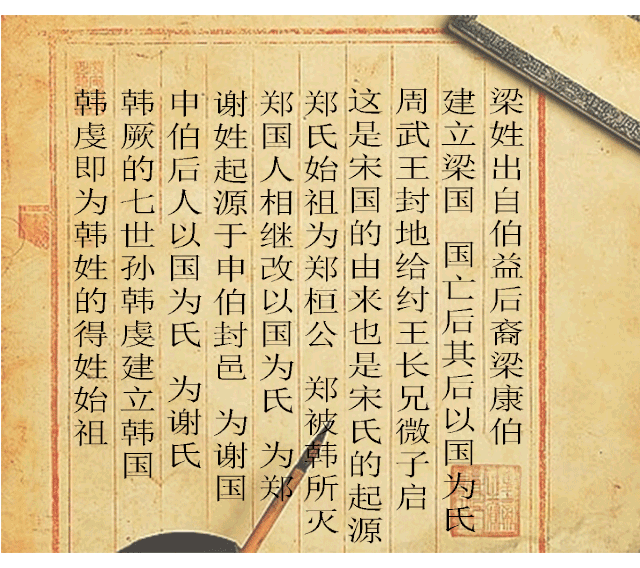 梁姓出自伯益后裔梁康伯
建立梁国 国亡后其后以国为氏
周武王封地给纣王长兄微子启
这是宋国的由来也是宋氏的起源
郑氏始祖为郑桓公 郑被韩所灭
郑国人相继改以国为氏 为郑
谢姓起源于申伯封邑 为谢国
申伯后人以国为氏 为谢氏
韩厥的七世孙韩虔建立韩国
韩虔即为韩姓的得姓始祖